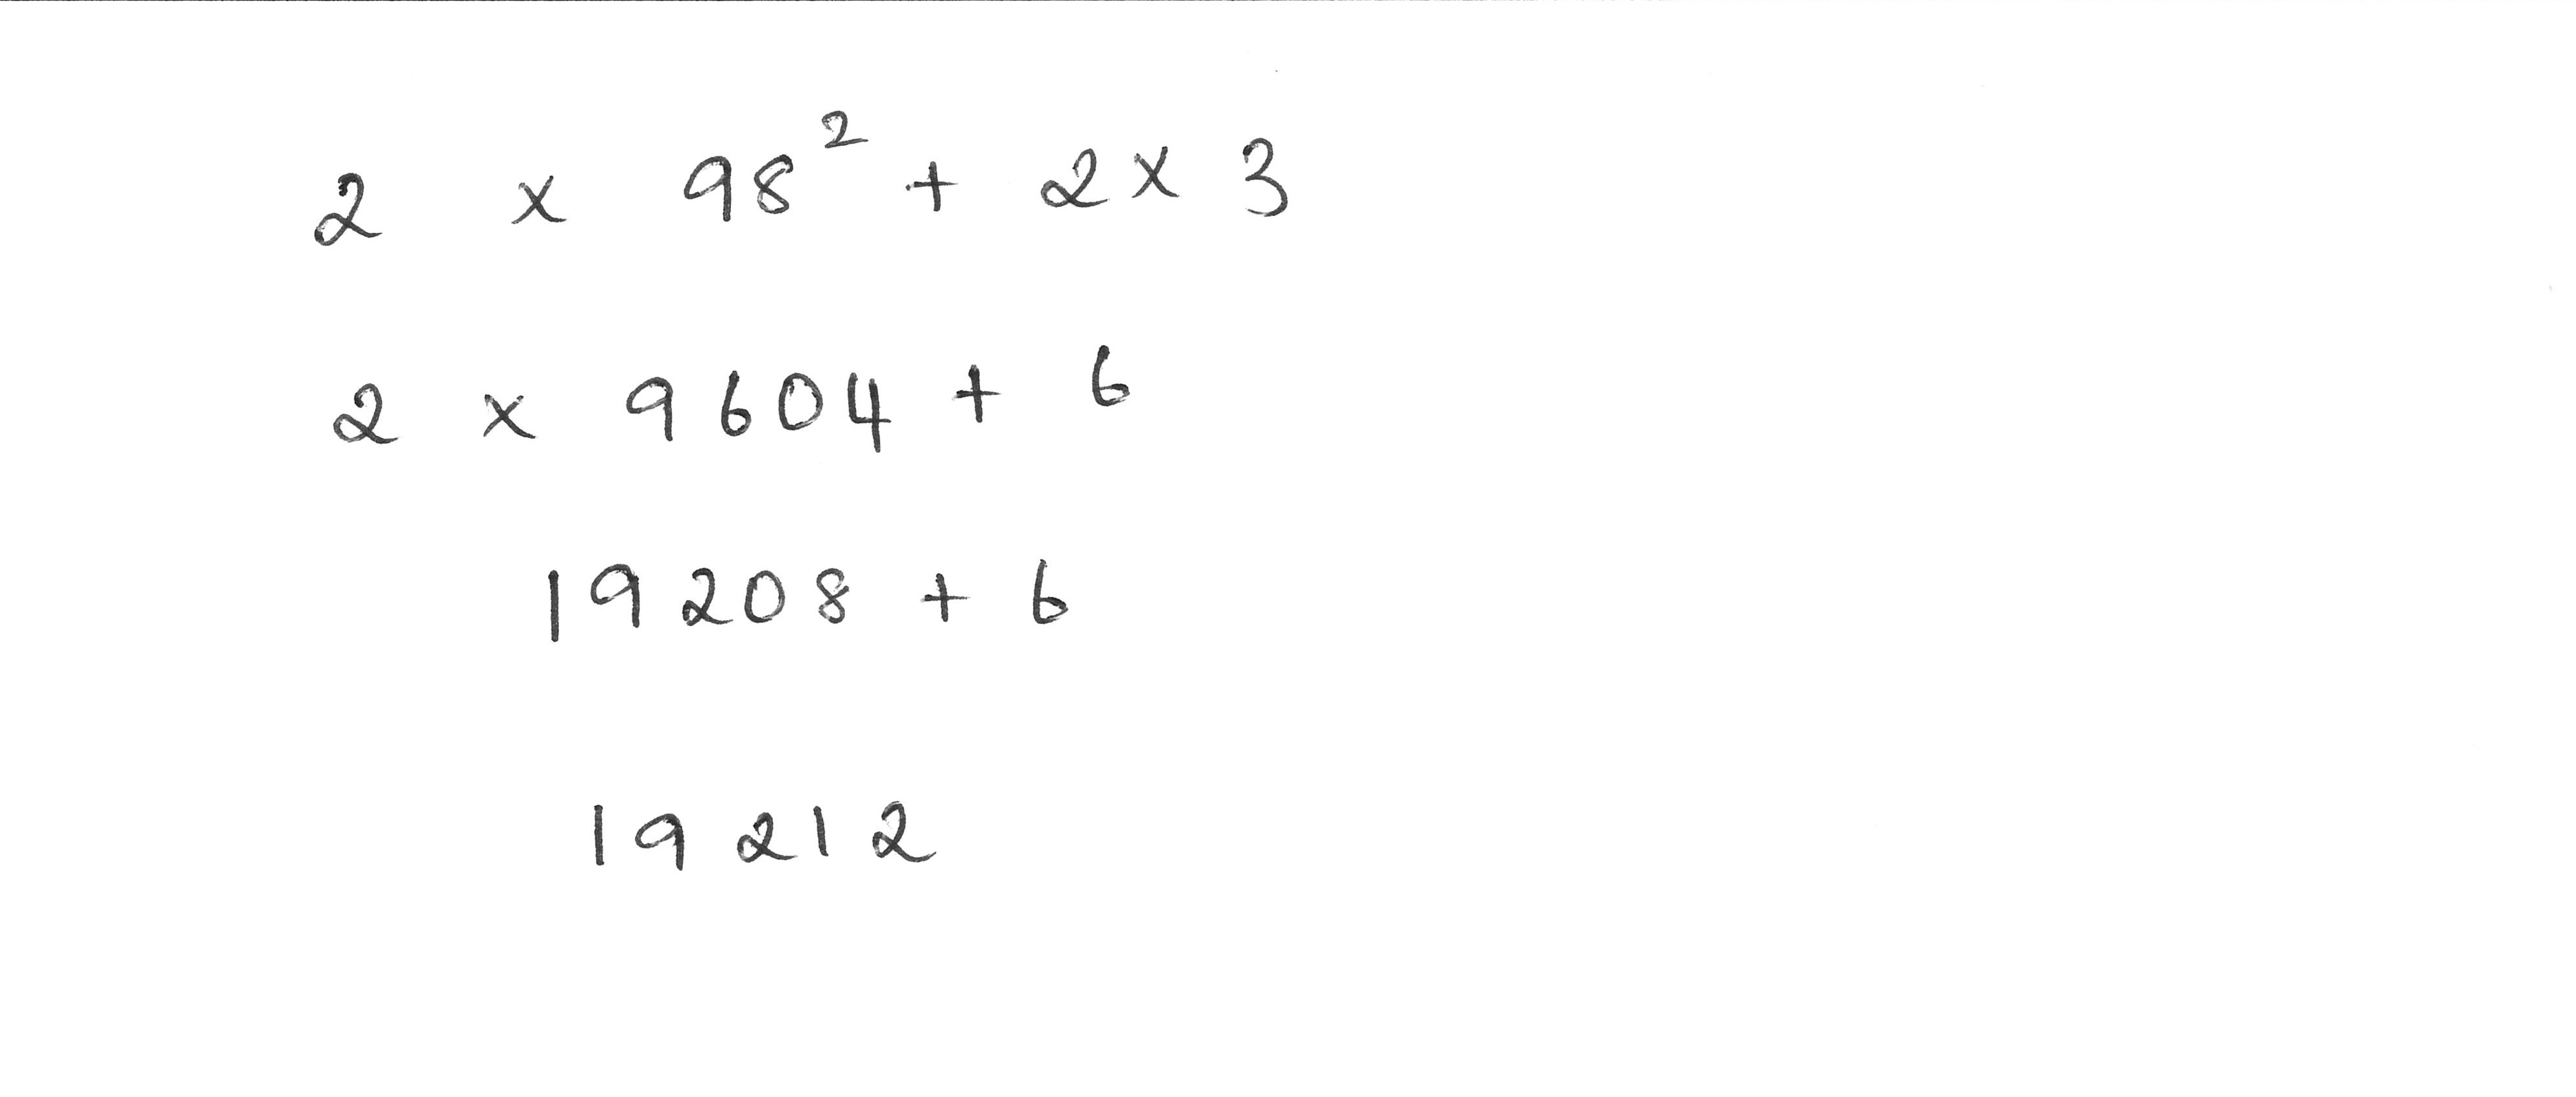 2 × 98² + 2 × 3
2 × 9604 + 6
19208 + 6
19212